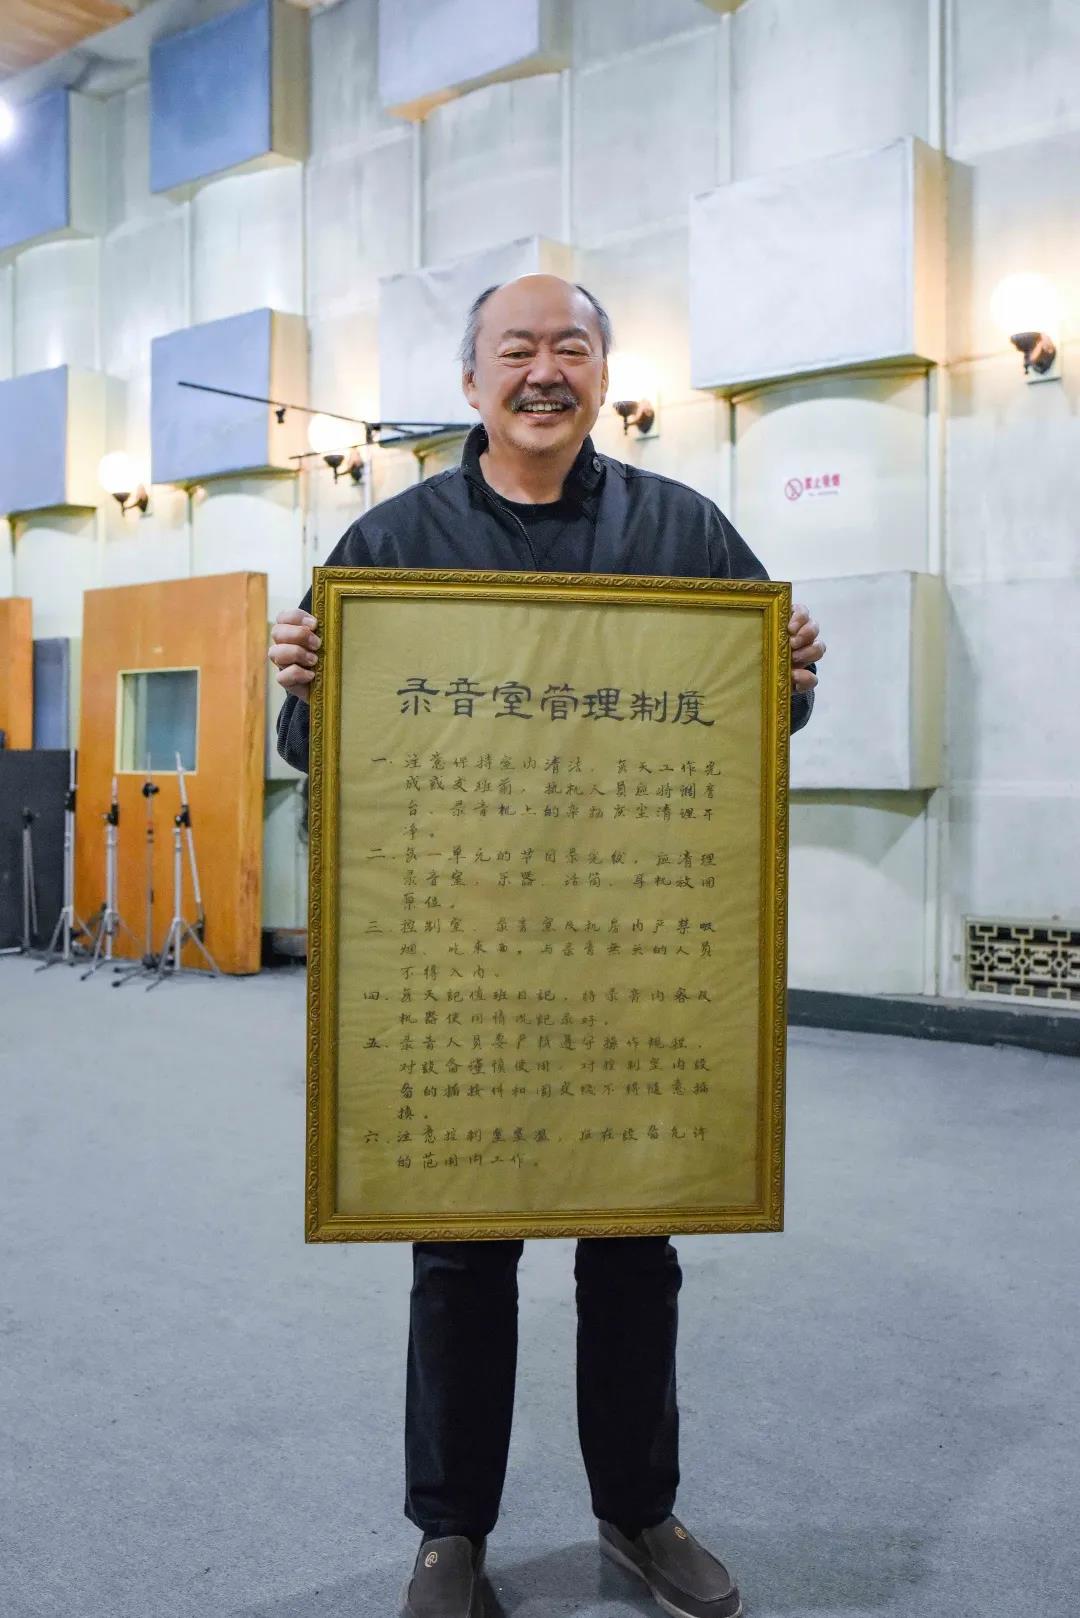 禁止吸烟
录音室管理制度
一.注意保持室内清洁，每天工作完
成或交班前，执机人员应将调音
台、录音机上的杂物灰尘清理干
净。
二.每一单元的节目录完后，应清理
录音室，乐器、话筒、耳机放回
原位。
三.控制室、录音室及机房内严禁吸
烟、吃東西。与录音無关的人员
不得入内。
四.每天記值班日記，将录音内容及
机器使用情况記录好。
五.录音人员要严格遵守操作规程，
对設备谨慎使用，对控制室内設
备的插接件和固定线不得随意插
换。
六.注意控制室室温，应在設备允许
的范围内工作。